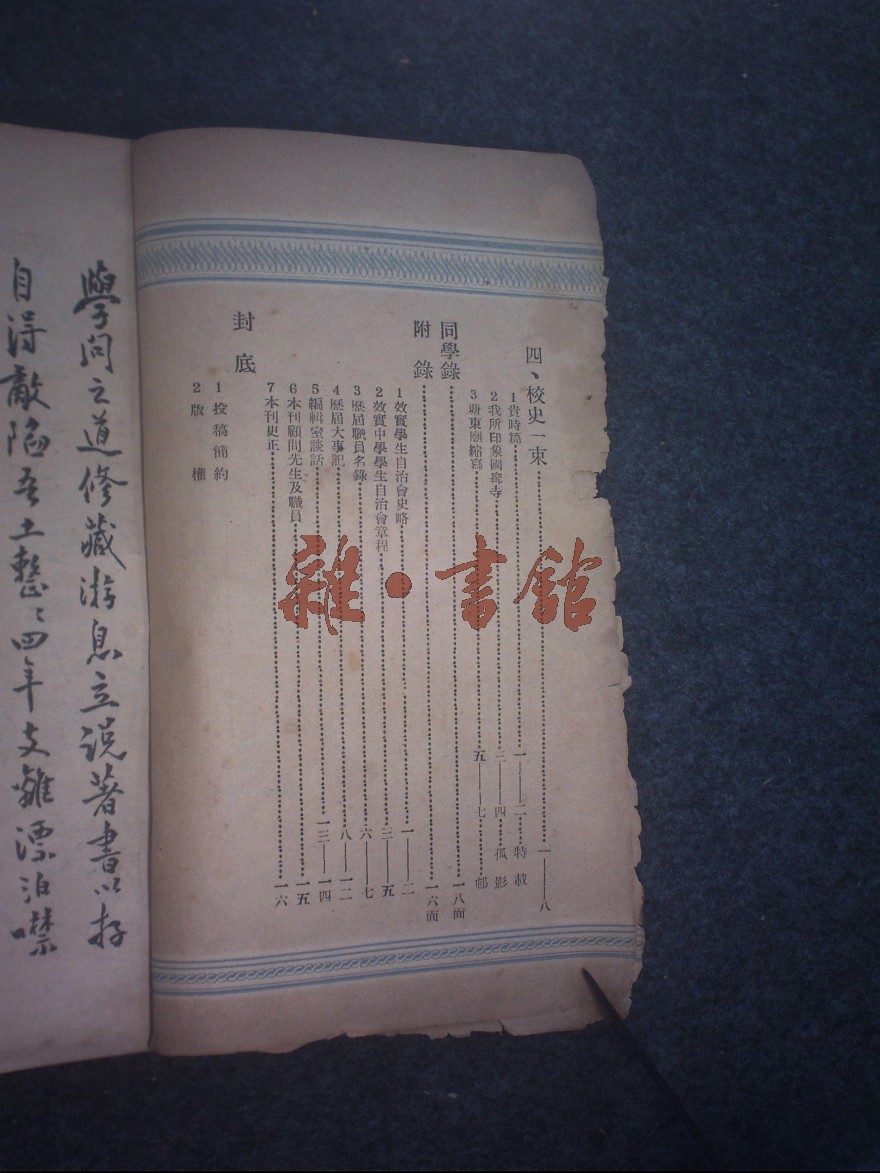 四、校史一束 一——八
1 貴時篇 一——二 特載
2 我所印象國寧寺 三——四 孤影
3 塘東廟縮寫 五——七 郵
同學錄 一八面
附錄 一六面
1 效實學生自治會史略 一——二
2 效實中學學生自治會章程 三——五
3 歷屆職員名錄 六——七
4 歷屆大事記 八——一二
5 編輯室談話 一三——一四
6 本刊顧問先生及職員 一五
7 本刊史正 一六
封底
1 投稿簡約
2 版權
學問之道修藏游息立說著書以存
自得敵陷吾土暫四年支離漂泊噤
雜·書館